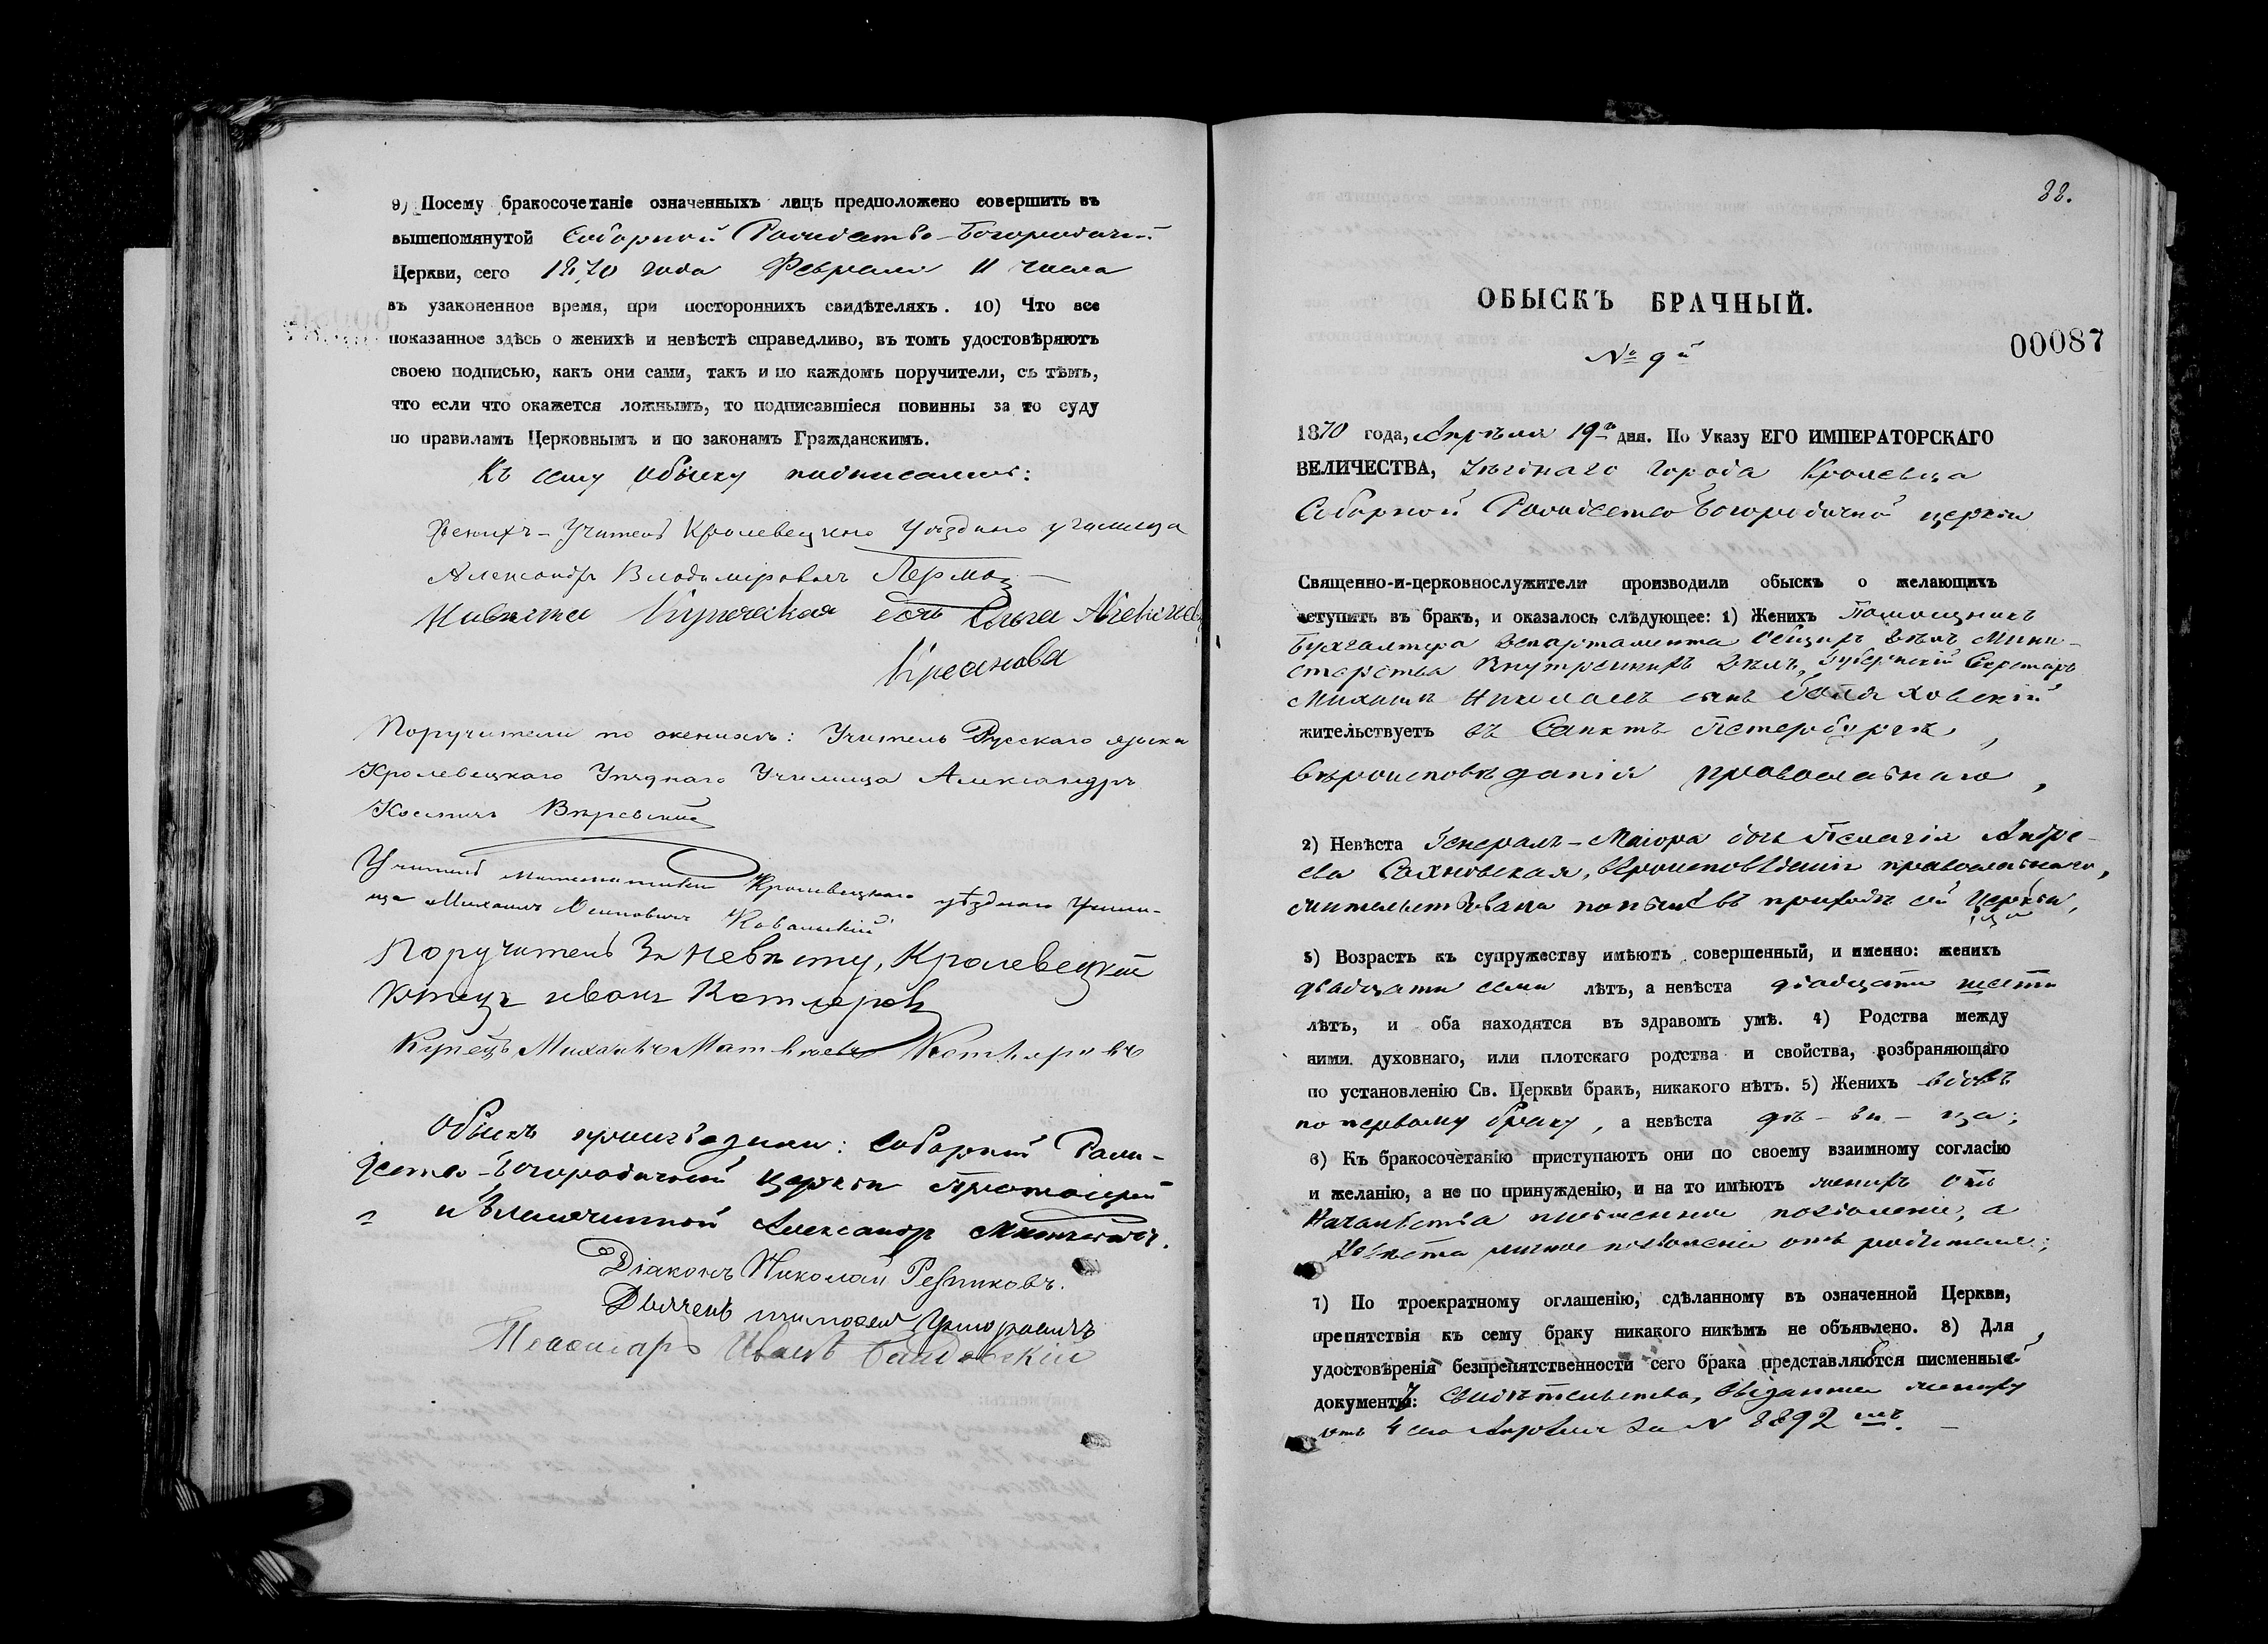 9) Посему бракосочетаніе означенныхъ лицъ предположено совершить въ
вышепомянутой Соборной Рождество-Богородичной
Церкви, сего 1870 года Февраля 11 числа
въ узаконенное время, при постороннихъ свидѣтеляхъ. 10) Что все
показанное здѣсь о женихѣ и невѣстѣ справедливо, въ томъ удостовѣряютъ
своею подписью, какъ они сами, такъ и по каждомъ поручители, съ тѣмъ,
что если что окажется ложнымъ, то подписавшіеся повинны за то суду
по правиламъ Церковнымъ и по законамъ Гражданскимъ.
Къ сему обыску подписались:
Женихъ - Учитель Кролевецкаго Уѣзднаго училища
Александръ Владиміровичъ
Невѣста Купеческая дочь Ольга
Поручители по женихѣ: Учитель Русскаго языка
Кролевецкаго Уѣзднаго Училища Александръ
Учитель Математики Кролевецкаго уѣзднаго Учили-
ща Михаилъ Осиповичъ Ковальскій
Поручитель За невѣсту, Кролевецкій
Купецъ Иванъ Котляровъ
Купецъ Михаилъ Матвѣевъ Котляровъ
Обыскъ производили: Соборной Рож-
дество-Богородичной Церкви Протоіерей
и Благочинный Александръ
Діаконъ Николай Резниковъ.
Дьячекъ
Пономарь Иванъ
88.
ОБЫСКЪ БРАЧНЫЙ.
00087
№ 9й
1870 года, Апрѣля 19го дня. По Указу ЕГО ИМПЕРАТОРСКАГО
ВЕЛИЧЕСТВА, Уѣзднаго города Кролевца
Соборной Рождество Богородичной церкви
Священно-и-церковнослужители производили обыскъ о желающихъ
вступить въ бракъ, и оказалось слѣдующее: 1) Женихъ Помощникъ
Бухгалтера Департамента Общихъ дѣлъ Мини-
стерства Внутреннихъ дѣлъ, Губернскій Секретарь
Михаилъ Николаевъ сынъ
жительствуетъ въ Санктъ Петербургѣ,
вѣроисповѣданія православнаго,
2) Невѣста Генералъ-Маіора дочь Пелагія Андре-
ева Сахновская, вѣроисповѣданія православнаго,
жительствовала понынѣ въ приходѣ сей Церкви,
3) Возрастъ къ супружеству имѣютъ совершенный, и именно: женихъ
двадцати семи лѣтъ, а невѣста двадцати шести
лѣтъ, и оба находятся въ здравомъ умѣ. 4) Родства между
ними духовнаго, или плотскаго родства и свойства, возбраняющаго
по установленію Св. Церкви бракъ, никакого нѣтъ. 5) Женихъ вдовъ
по первому браку, а невѣста дѣ-ви-ца;
6) Къ бракосочетанію приступаютъ они по своему взаимному согласію
и желанію, а не по принужденію, и на то имѣютъ женихъ отъ
Начальства письменное позволеніе, а
Невѣста личное позволеніе отъ родителя;
7) По троекратному оглашенію, сдѣланному въ означенной Церкви,
препятствія къ сему браку никакого никѣмъ не объявлено. 8) Для
удостовѣренія безпрепятственности сего брака представляются письменные
документы: Свидѣтельства, выданное жениху
отъ 4 сего Апрѣля за № 8892мъ.